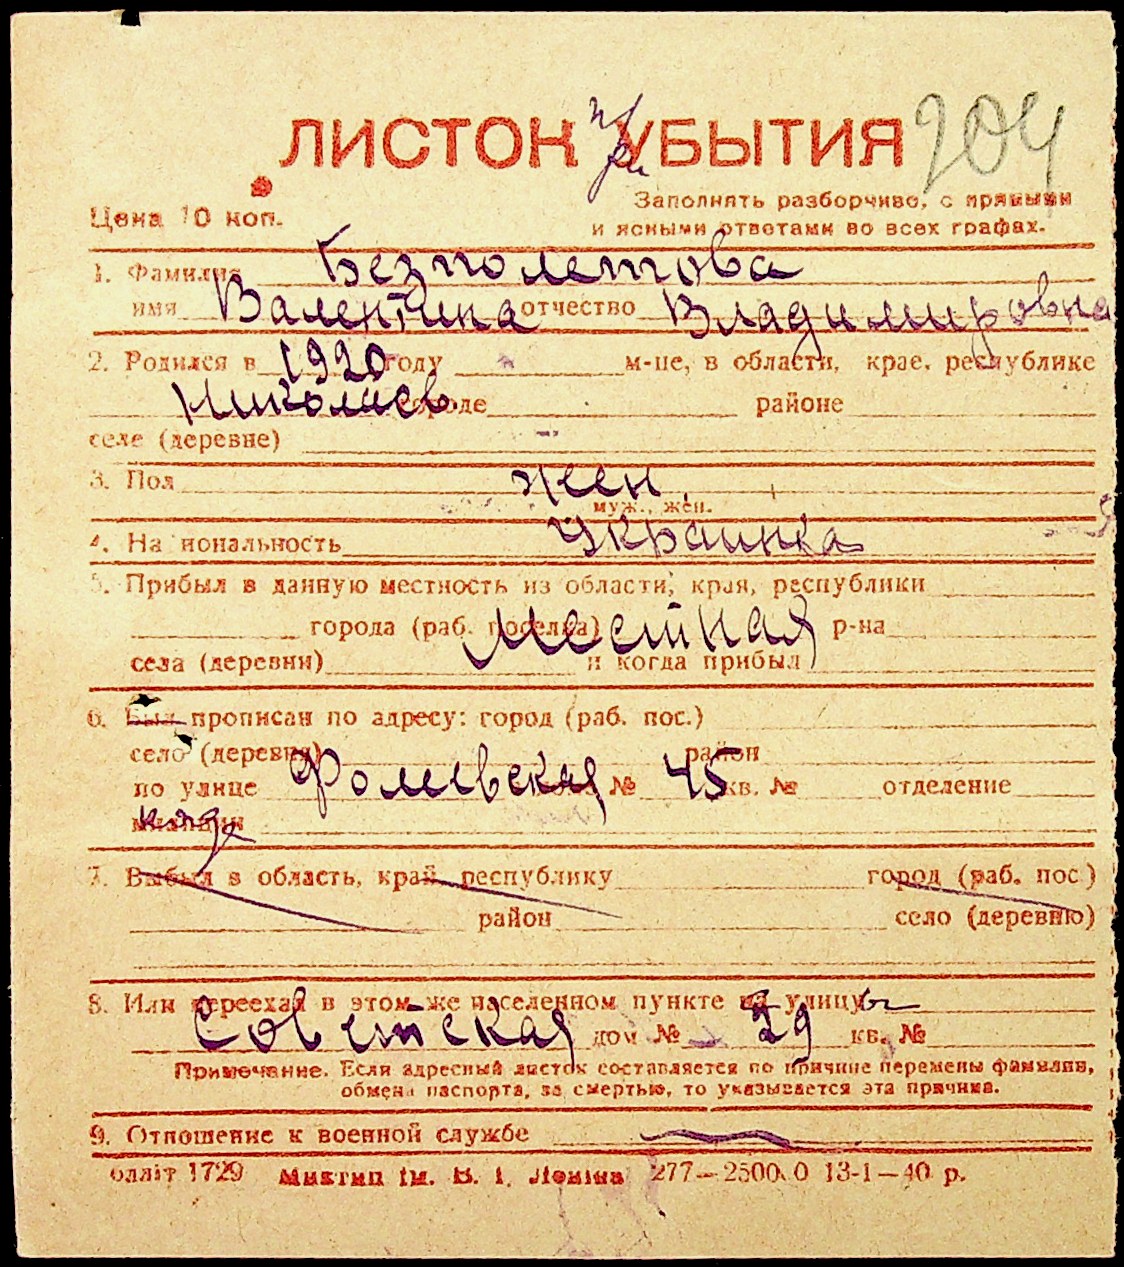 ЛИСТОК при УБЫТИЯ 204
Цена 10 коп.
Заполнять разборчиво, с прямыми
и ясными ответами во всех графах.
1. Фамилия Безполетова
имя Валентина отчество Владимировна
2. Родился в 1920 году м-це, в области, крае, республике
Николаев городе районе
селе (деревне)
3. Пол жен.
муж., жен.
4. Национальность Украинка
5. Прибыл в данную местность из области, края, республики
города (раб. поселка) Местная р-на
села (деревни) и когда прибыл
6. Был прописан по адресу: город (раб. пос.)
село (деревня) район
по улице № 45 кв. № отделение
милиции
7. Выбыл в область, край, республику город (раб. пос.)
район село (деревню)
8. Или переехал в этом же населенном пункте на улицу
Советская дом № 29 кв. №
Примечание. Если адресный листок составляется по причине перемены фамилии,
обмена паспорта, за смертью, то указывается эта причина.
9. Отношение к военной службе
блліт 1729 Миктип ім. В. І. Леніна 277—2500.0 13-1—40 р.